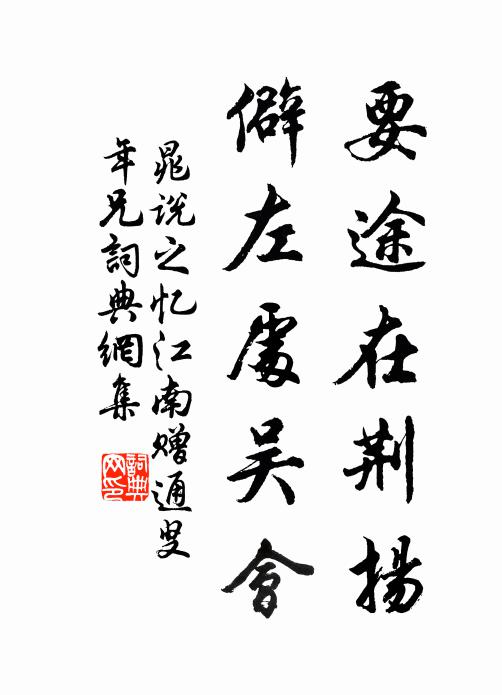 要途在荆揚
僻左處吴會
晁说之忆江南赠通叟
年兄詞典網集
詞典網印